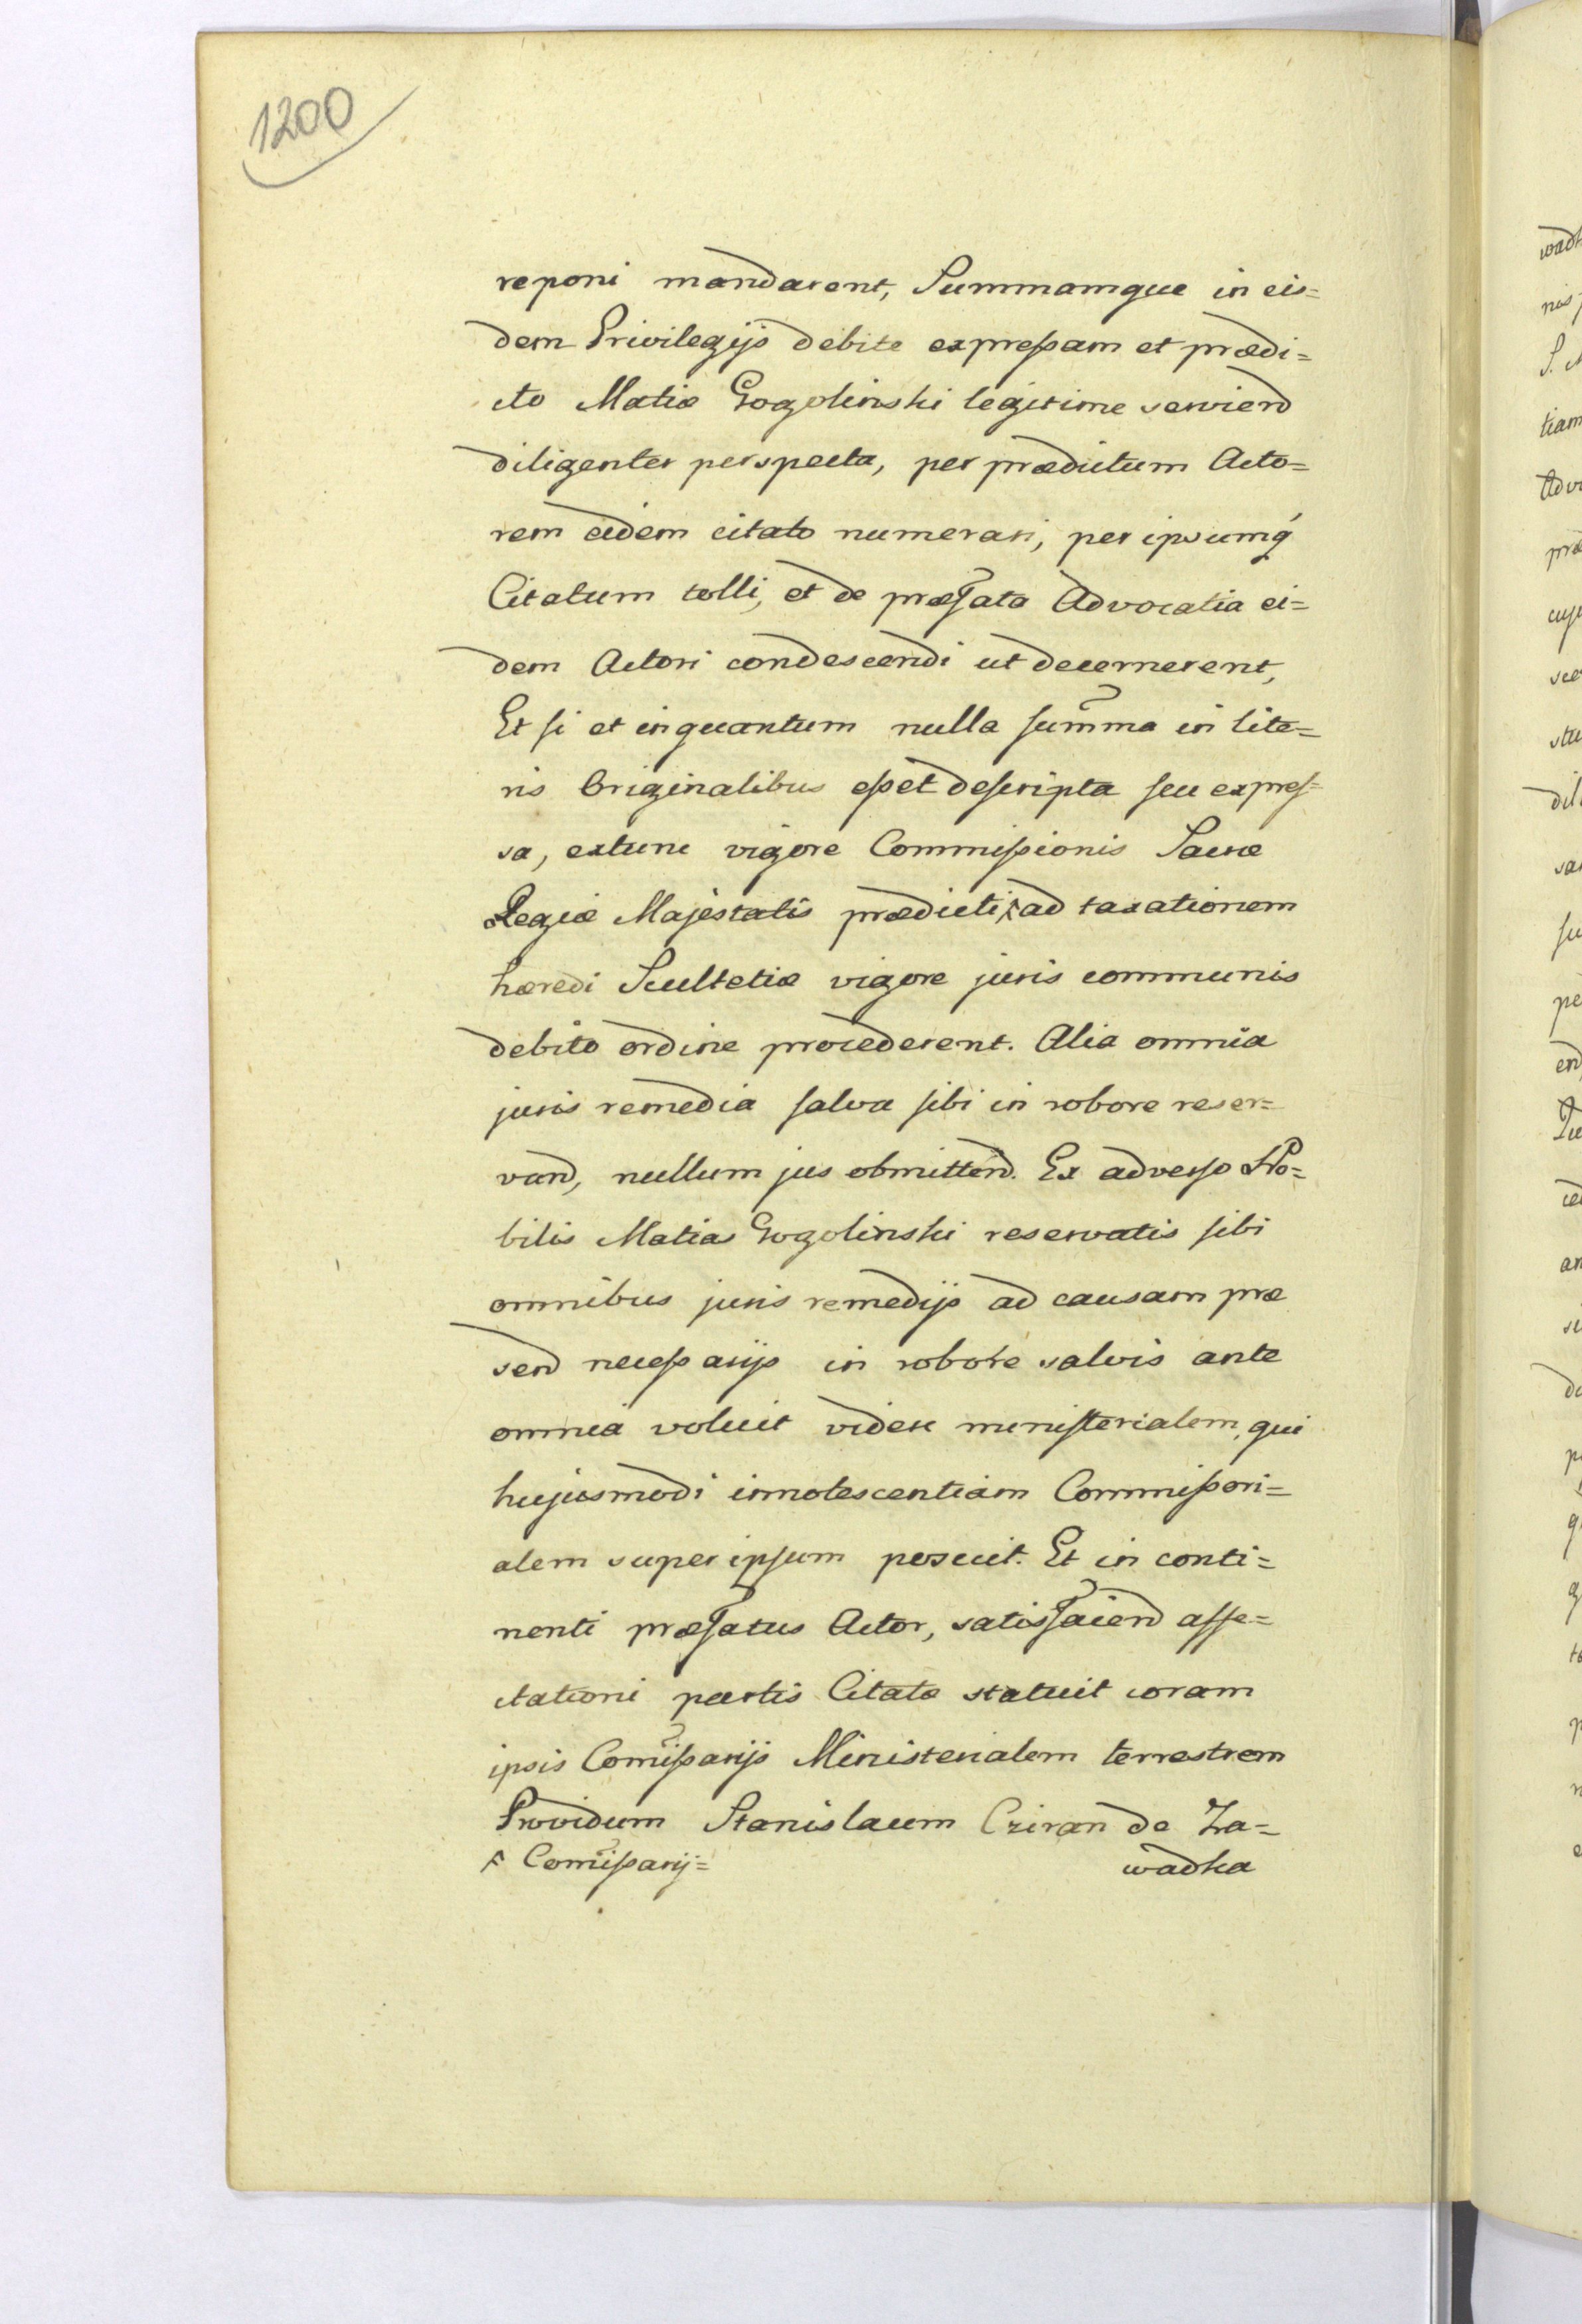 1200
reponi mandarent, Summamque in eis=
dem Privilegijs debite expreſsam et prædi=
cto Matiæ Gogolinski legitime serviend
diligenter perspecta, per prædictum Acto=
rem eidem citato numerari, per ipsumq́
Citatum tolli, et de præfata Advocatia ei=
dem Actori condescendi ut decernerent,
Et ſi et inquantum nulla ſum̃ma in lite=
ris Originalibus eſset deſcripta ſeu expreſ=
sa, extunc vigore Commiſsionis Sacræ
Regiæ Majestatis prædicti ^ ad taxationem
hæredi Scultetiæ vigore juris communis
debito ordine procederent. Alia omnia
juris remedia ſalva ſibi in robore reser=
vand, nullum jus obmittend. Ex adverſo No=
bilis Matias Gogolinski reservatis ſibi
omnibus juris remedijs ad causam præ
send neceſsarijs in robore salvis ante
omnia voluit videre miniſterialem, qui
hujusmodi innotescentiam Commiſsori=
alem super ipſum posuit. Et in conti=
nenti præfatus Actor, satisfaciend affe=
ctationi partis Citatæ statuit coram
ipsis Com̃iſsarijs Ministerialem terrestrem
Providum Stanislaum Cziran de Za=
^ Com̃iſsarij=
wadka